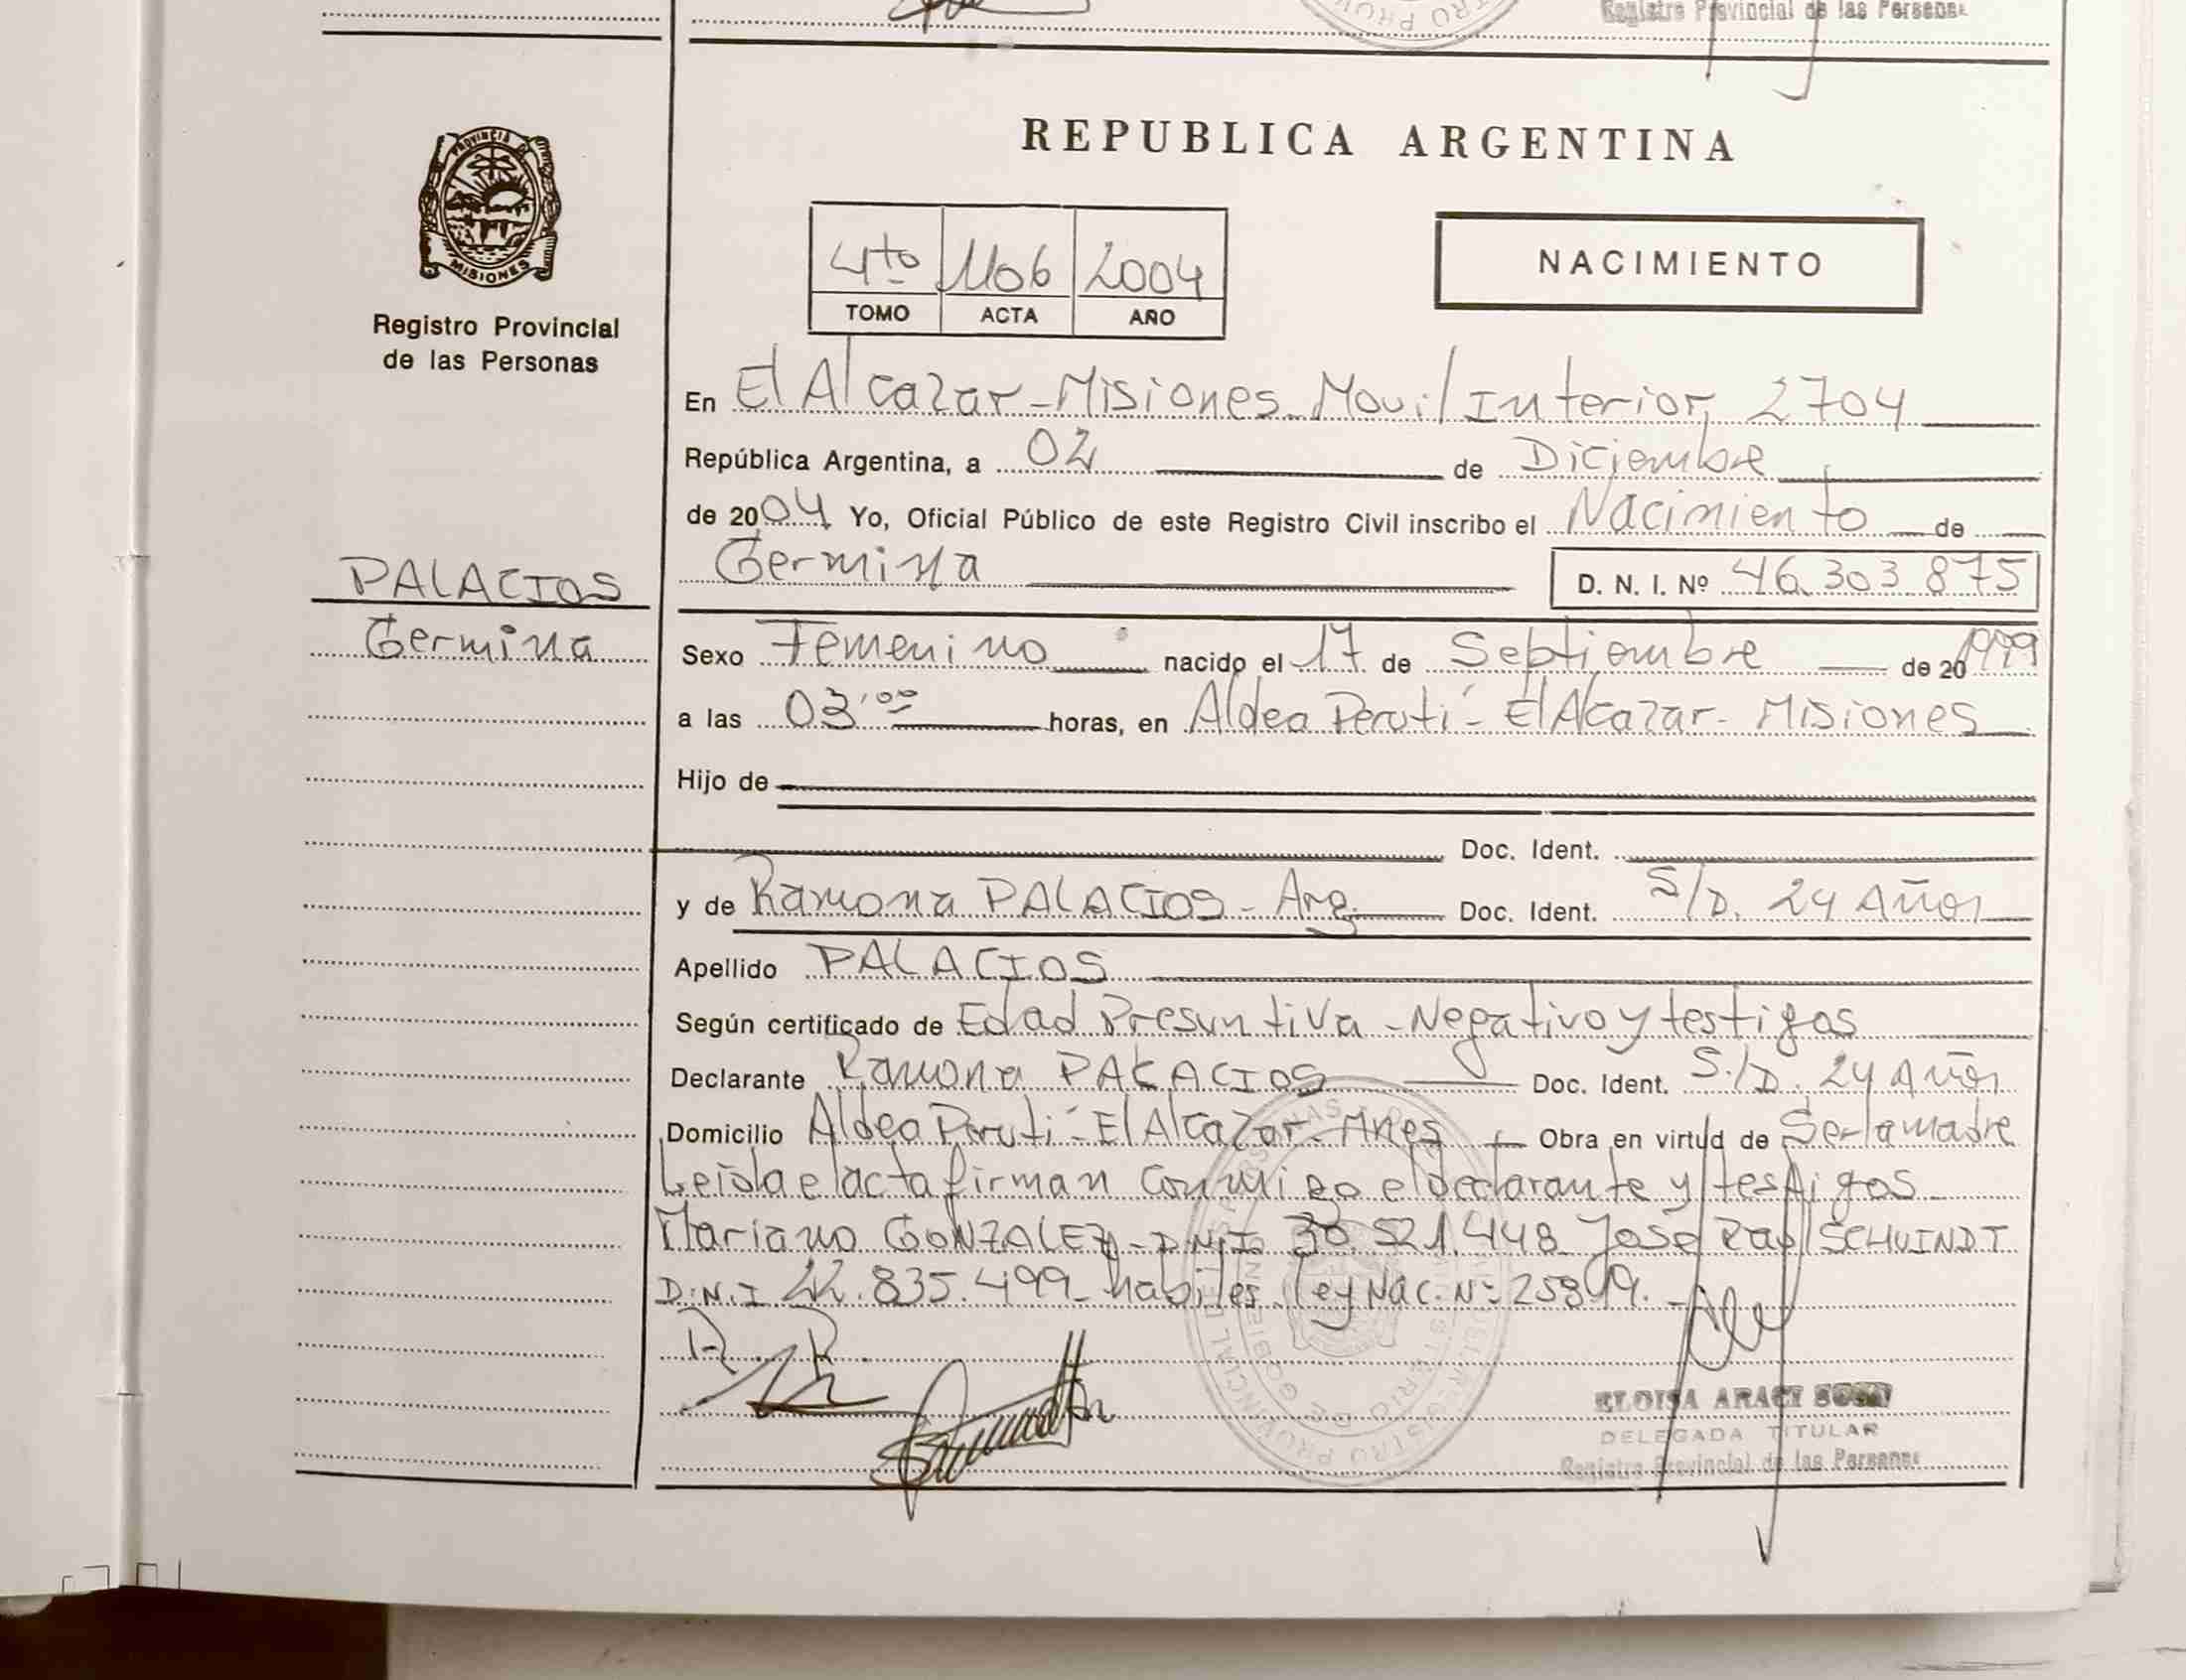 Registro Provincial de las Personas
REPUBLICA ARGENTINA
PROVINCIA DE
MISIONES
Registro Provincial
de las Personas
4to 1106 2004
TOMO ACTA AÑO
NACIMIENTO
En El Alcazar - Misiones - Movil Interior, 2704
República Argentina, a 02 de Diciembre
de 2004 Yo, Oficial Público de este Registro Civil inscribo el Nacimiento de
Germina D. N. I. Nº 46.303.875
PALACIOS
Germina
Sexo Femenino nacido el 17 de Septiembre de 20 1999
a las 03'00 horas, en Aldea Peruti - El Alcazar - Misiones
Hijo de
Doc. Ident.
y de Ramona PALACIOS - Arg. Doc. Ident. S/D. 24 Años
Apellido PALACIOS
Según certificado de Edad Presuntiva - Negativo y testigos
Declarante Ramona PALACIOS Doc. Ident. S/D. 24 Años
Domicilio Aldea Peruti - El Alcazar - Mnes Obra en virtud de Ser la madre
Leida el acta firman conmigo el declarante y testigos
Mariano GONZALEZ - D.N.I. 30.521.448 Jose Raul SCHUINDT
D.N.I 22.835.499 - habiles - ley Nac. Nº 25819.
R. P.
ELOISA ARACI
DELEGADA TITULAR
Registro Provincial de las Personas